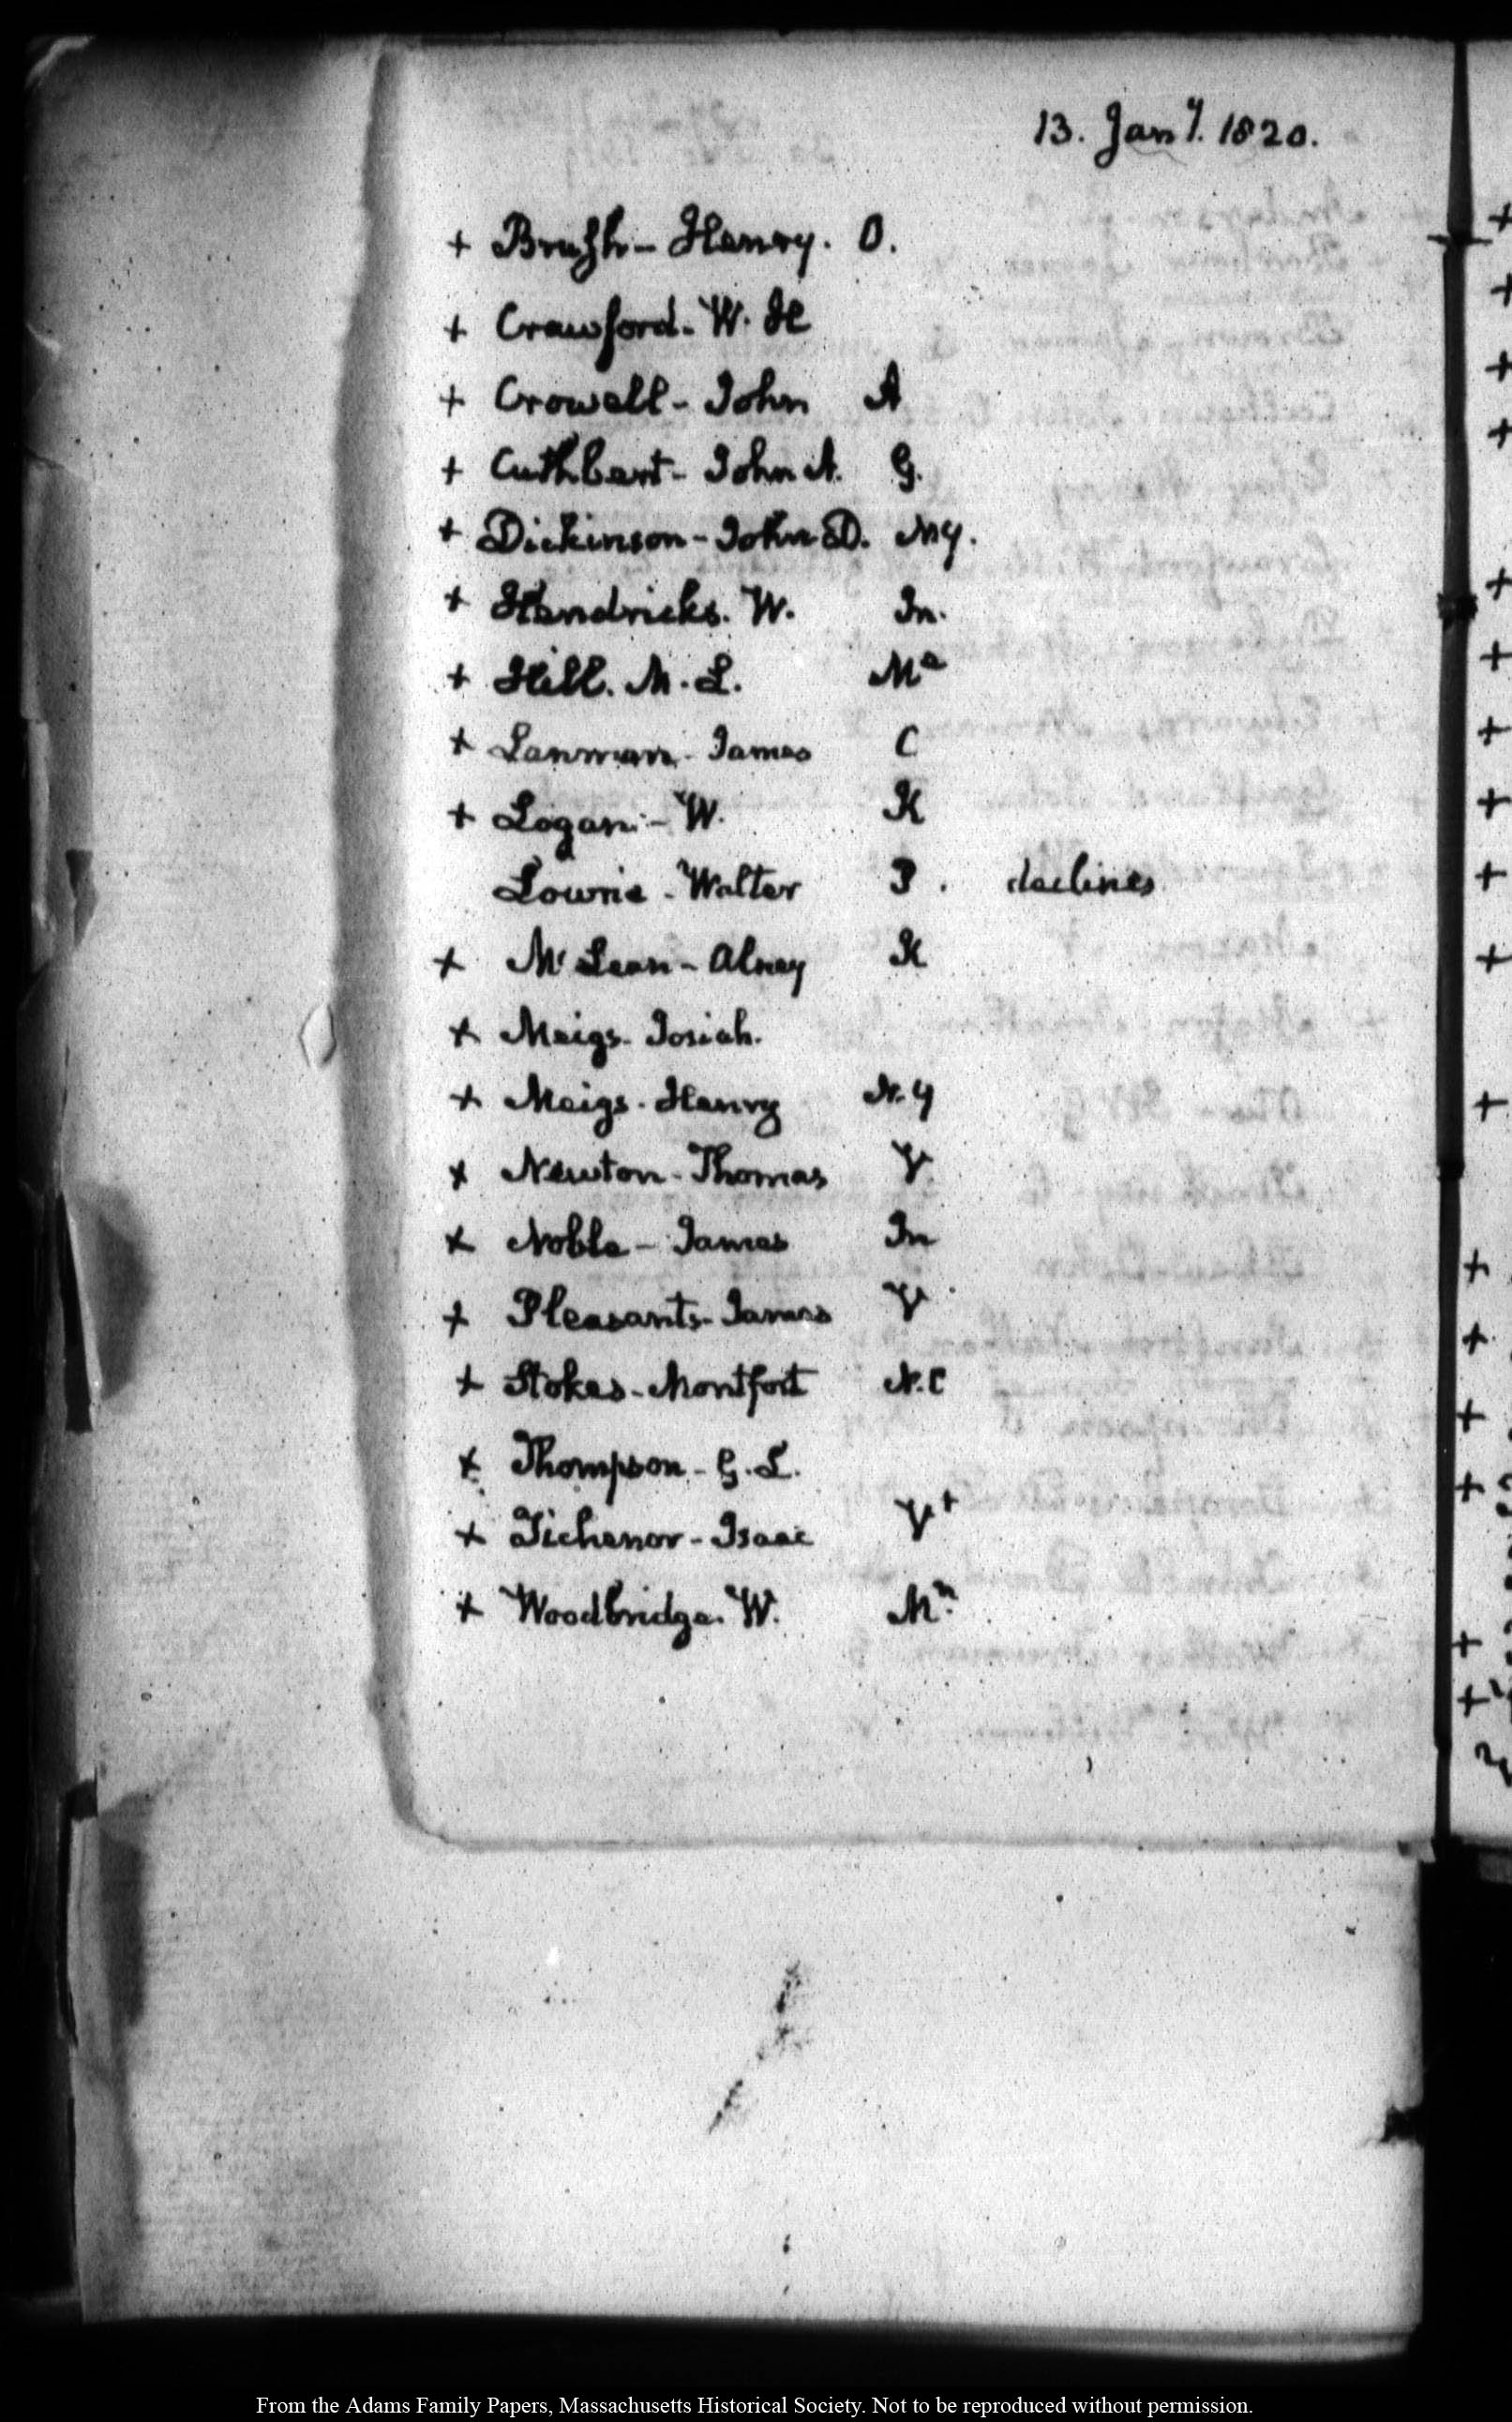 13. Jany. 1820.
+ Brush - Henry. O.
+ Crawford - W. H
+ Crowell - John A
+ Cuthbert - John A. G.
+ Dickinson - John D. NY.
+ Hendricks. W. In.
+ Hill. M. L. Ma
+ Lanman - James C
+ Logan - W. K
Lowrie - Walter P. declines
+ McLean - Alney K
+ Meigs - Josiah.
+ Meigs - Henry N.Y
+ Newton - Thomas V.
+ Noble - James In
+ Pleasants - James V
+ Stokes - Montfort N.C
+ Thompson - G. L.
+ Tichenor - Isaac Vt
+ Woodbridge. W. Mn.
From the Adams Family Papers, Massachusetts Historical Society. Not to be reproduced without permission.